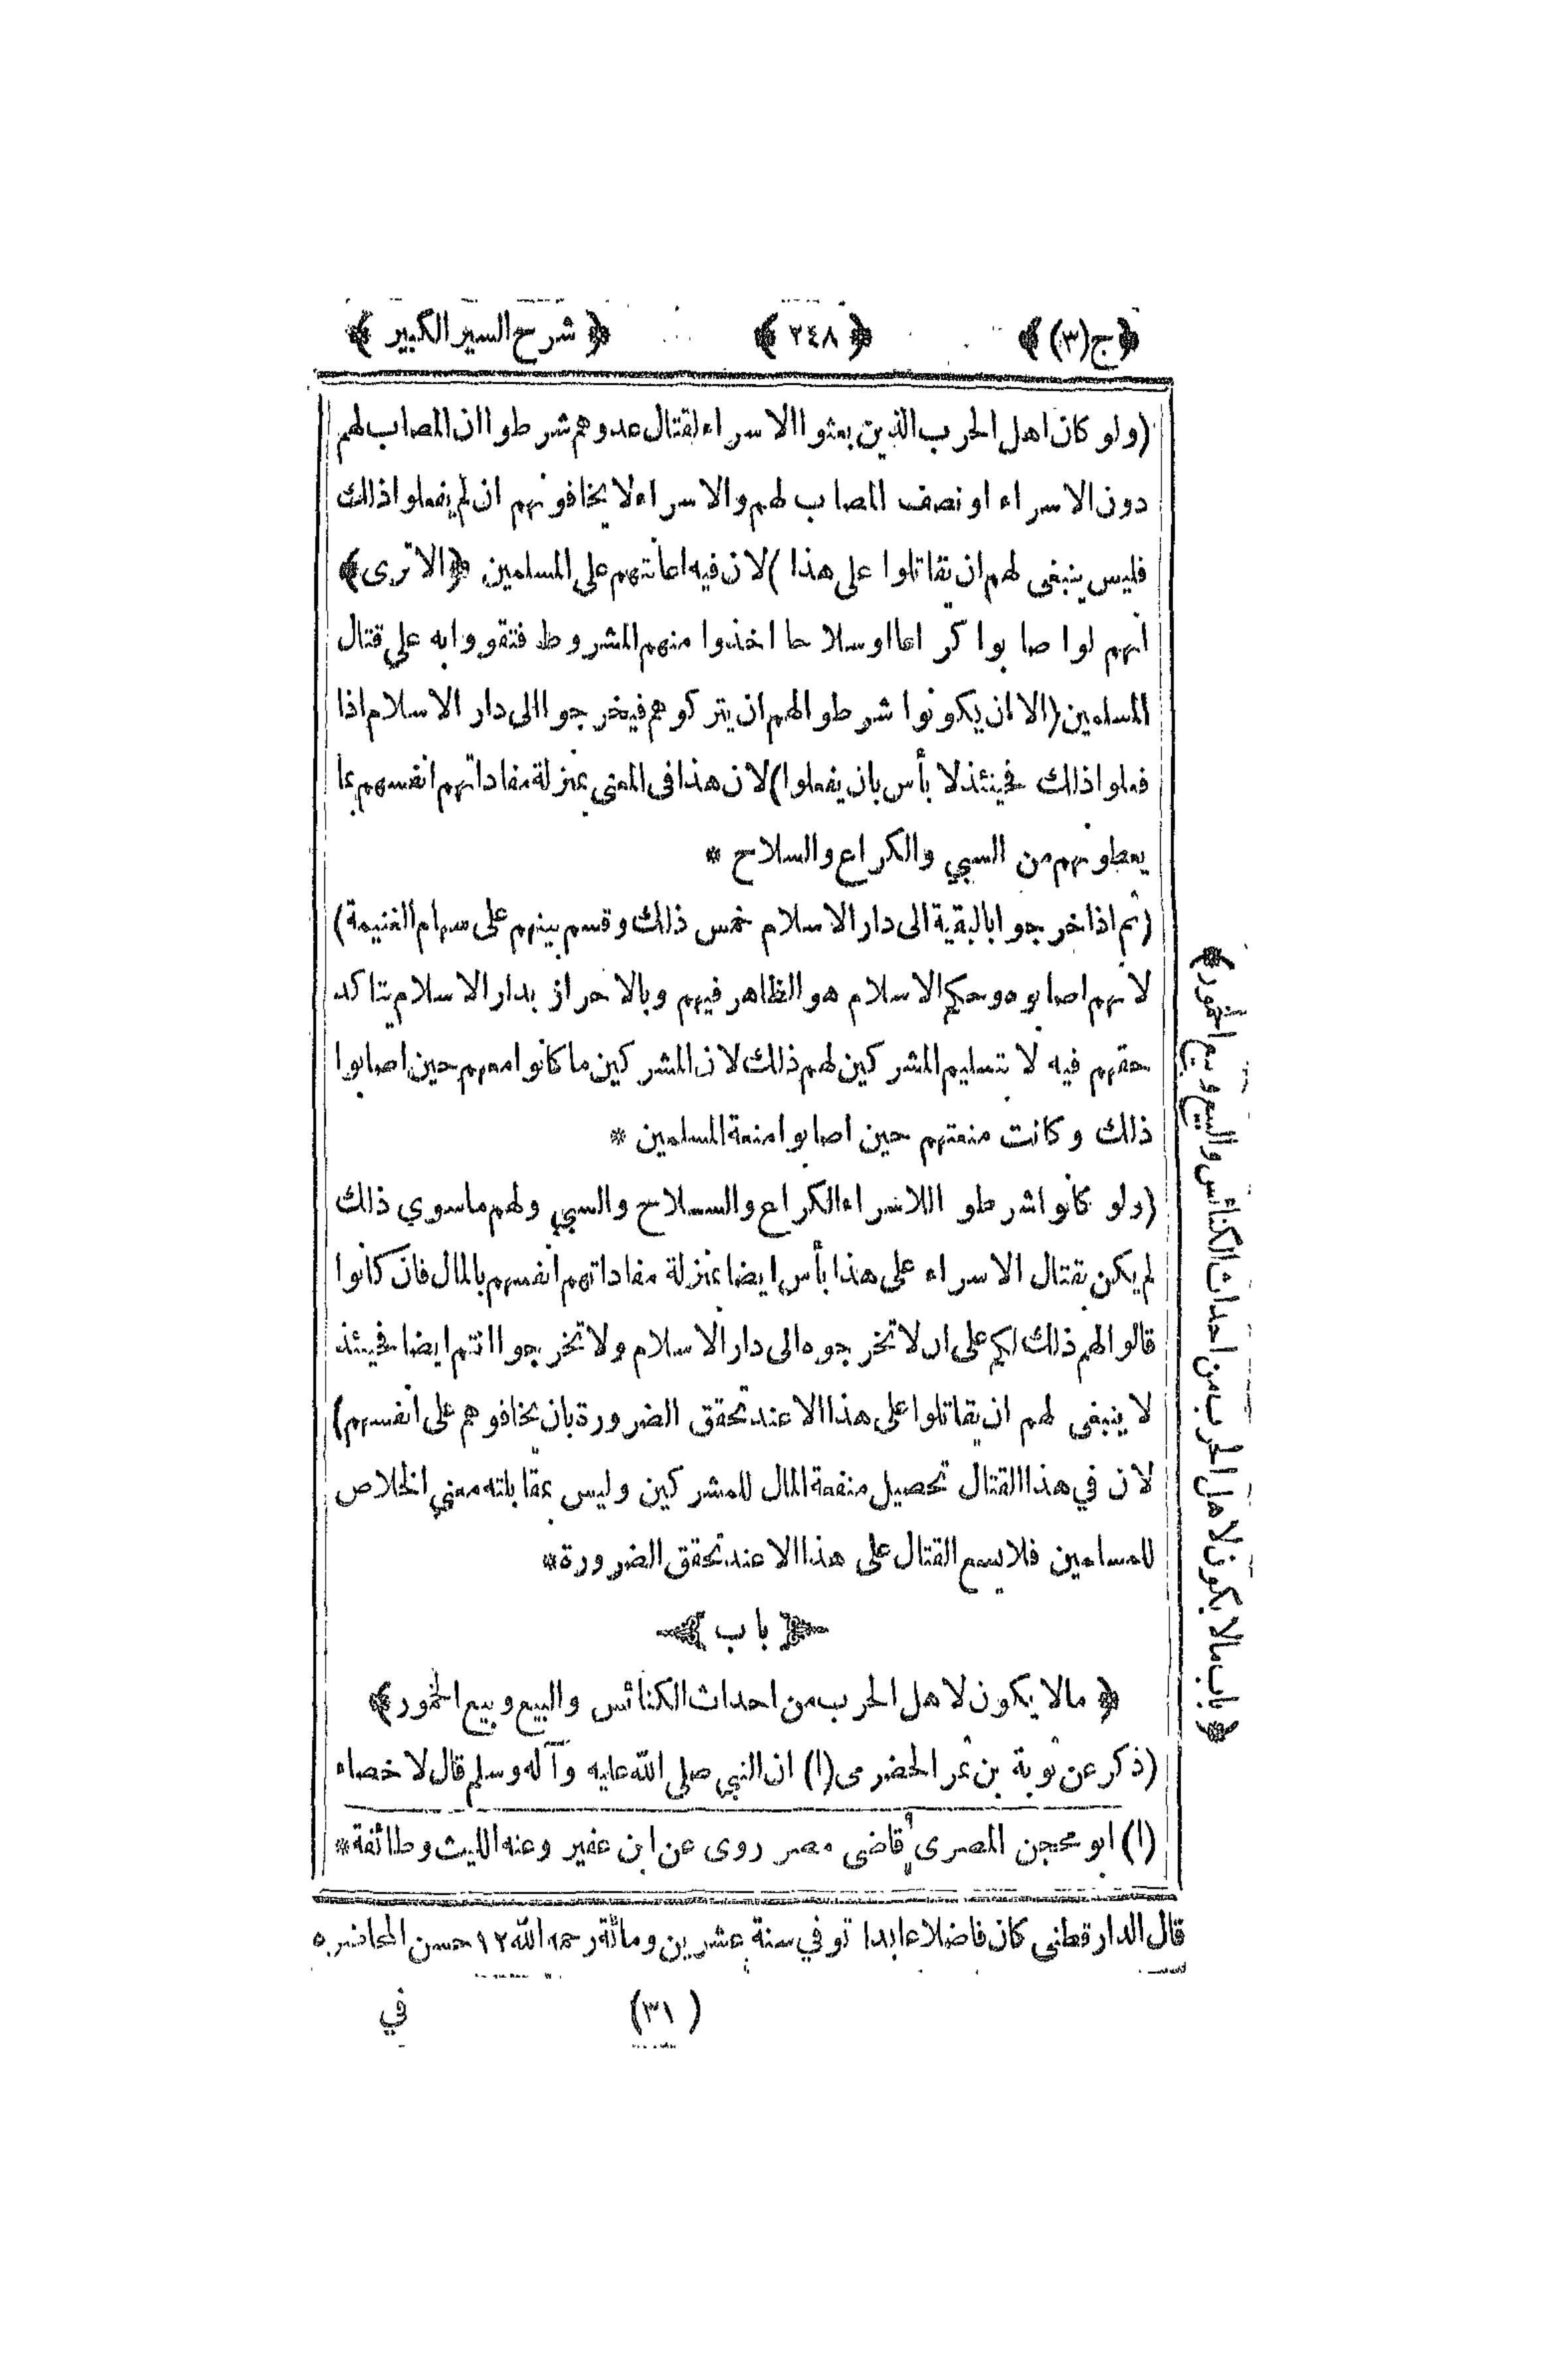 ﴿ ج (٣) ﴾ ﴿ ٢٤٨ ﴾ ﴿ شرح السير الكبير ﴾
(ولو كان اهل الحرب الذين بعثوا الاسراء لقتال عدوهم شرطوا ان المصاب لهم
دون الاسراء او نصف المصاب لهم والاسراء لا يخافونهم ان لم يفعلوا ذلك
فليس ينبغى لهم ان يقاتلوا على هذا) لان فيه اعانتهم على المسلمين ﴿ الا ترى ﴾
انهم لو اصابوا كراعا او سلاحا اخذوا منهم المشروط فتقووا به على قتال
المسلمين (الا ان يكونوا شرطوا لهم ان يتركوهم فيخرجوا الى دار الاسلام اذا
فعلوا ذلك فحينئذ لا بأس بان يفعلوا) لان هذا فى المعنى بمنزلة مفاداتهم انفسهم بما
يعطونهم من السبي والكراع والسلاح *
(ثم اذا خرجوا بالبقية الى دار الاسلام خمس ذلك وقسم بينهم على سهام الغنيمة)
لانهم اصابوه وحكم الاسلام هو الظاهر فيهم وبالاحراز بدار الاسلام يتاكد
حقهم فيه لا بتسليم المشركين لهم ذلك لان المشركين ما كانوا معهم حين اصابوا
ذلك وكانت منعتهم حين اصابوا منعة المسلمين *
(ولو كانوا شرطوا للاسراء الكراع والسلاح والسبي ولهم ما سوي ذلك
لم يكن بقتال الاسراء على هذا بأس ايضا بمنزلة مفاداتهم انفسهم بالمال فان كانوا
قالوا لهم ذلك لكم على ان لا تخرجوه الى دار الاسلام ولا تخرجوا انتم ايضا فحينئذ
لا ينبغى لهم ان يقاتلوا على هذا الا عند تحقق الضرورة بان يخافوهم على انفسهم)
لان في هذا القتال تحصيل منفعة المال للمشركين وليس بمقابلته معني الخلاص
للمسلمين فلا يسع القتال على هذا الا عند تحقق الضرورة *
﴿ باب ﴾
﴿ ما لا يكون لاهل الحرب من احداث الكنائس والبيع وبيع الخمور ﴾
(ذكر عن توبة بن نمر الحضرمى (١) ان النبي صلى الله عليه وآله وسلم قال لا خصاء
(١) ابو محجن المصرى قاضى مصر روى عن ابن عفير وعنه الليث وطائفة *
قال الدارقطنى كان فاضلا عابدا توفي سنة عشرين ومائة رحمه الله ١٢ حسن المحاضره
(٣١) في
﴿ باب ما لا يكون لاهل الحرب من احداث الكنائس والبيع وبيع الخمور ﴾